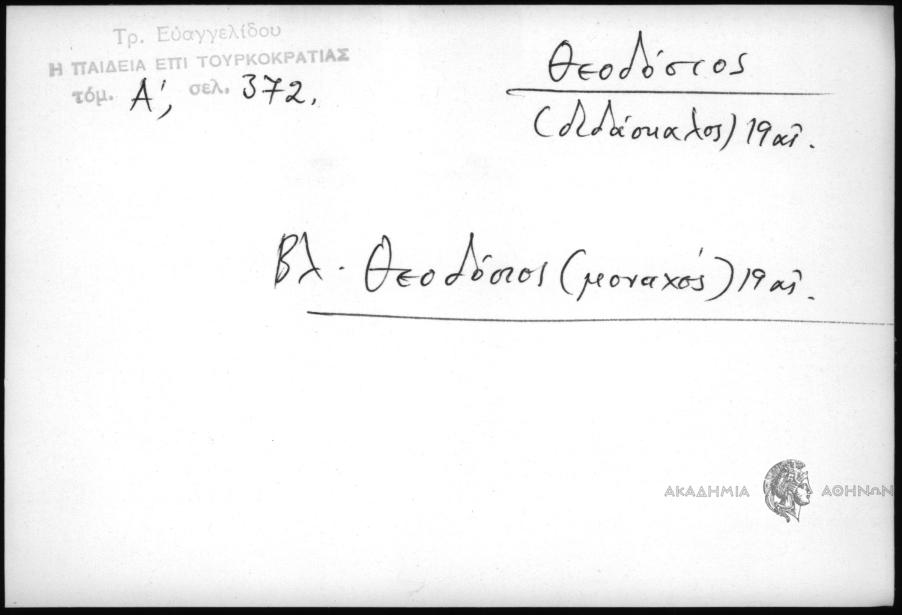 Τρ. Εὐαγγελίδου
Η ΠΑΙΔΕΙΑ ΕΠΙ ΤΟΥΡΚΟΚΡΑΤΙΑΣ
τόμ. Α', σελ. 372.
Θεοδόσιος
(διδάσκαλος) 19 αἰ.
Βλ. Θεοδόσιος (μοναχός) 19 αἰ.
ΑΚΑΔΗΜΙΑ ΑΘΗΝΩΝ